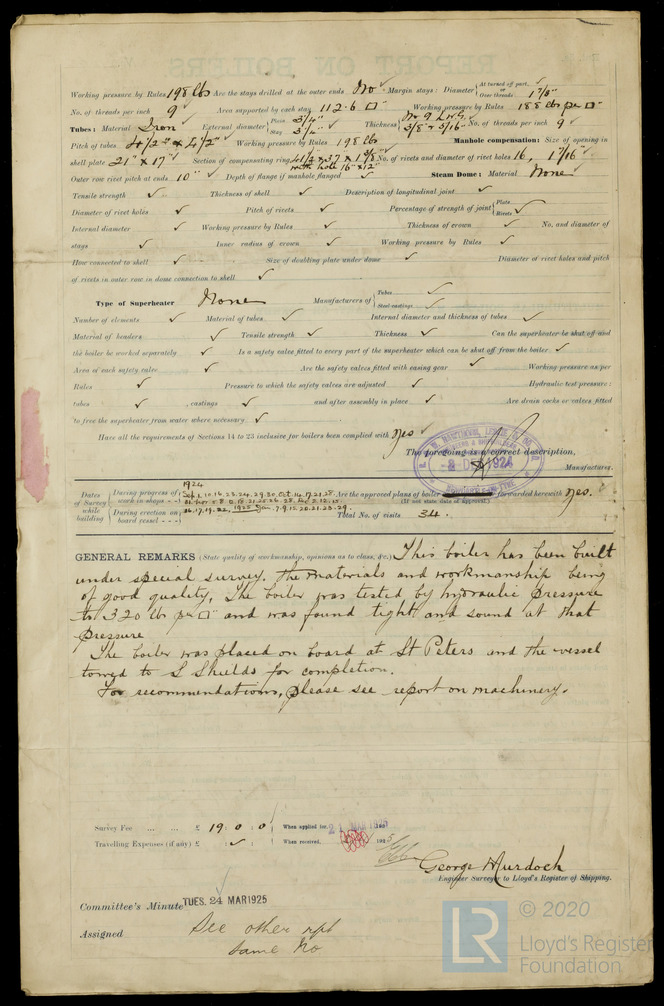 Working pressure by Rules 198 lbs Are the stays drilled at the outer ends No Margin stays: Diameter { At turned off part, or Over threads 1 7/8"
No. of threads per inch 9 Area supported by each stay 112.6 □" Working pressure by Rules 188 lbs per □"
Tubes: Material Iron External diameter { Plain 3 1/4" Stay 3 1/4" Thickness { No 9 L.W.G. 3/8" & 5/16" No. of threads per inch 9
Pitch of tubes 4 1/2" x 4 1/2" Working pressure by Rules 198 lbs Manhole compensation: Size of opening in
shell plate 21" x 17" Section of compensating ring No. of rivets and diameter of rivet holes 16, 1 7/16"
Outer row rivet pitch at ends 10" Depth of flange if manhole flanged Steam Dome: Material None
Tensile strength Thickness of shell Description of longitudinal joint
Diameter of rivet holes Pitch of rivets Percentage of strength of joint { Plate Rivets
Internal diameter Working pressure by Rules Thickness of crown No. and diameter of
stays Inner radius of crown Working pressure by Rules
How connected to shell Size of doubling plate under dome Diameter of rivet holes and pitch
of rivets in outer row in dome connection to shell
Type of Superheater None Manufacturers of { Tubes Steel castings
Number of elements Material of tubes Internal diameter and thickness of tubes
Material of headers Tensile strength Thickness Can the superheater be shut off and
the boiler be worked separately Is a safety valve fitted to every part of the superheater which can be shut off from the boiler
Area of each safety valve Are the safety valves fitted with easing gear Working pressure as per
Rules Pressure to which the safety valves are adjusted Hydraulic test pressure:
tubes , castings and after assembly in place Are drain cocks or valves fitted
to free the superheater from water where necessary
Have all the requirements of Sections 14 to 23 inclusive for boilers been complied with Yes
The foregoing is a correct description,
Manufacturer.
1924
Dates of Survey while building
During progress of work in shops - - Sep. 10.16.23.24.29.30. Oct. 14.17.21.28. Are the approved plans of boiler forwarded herewith Yes.
(If not state date of approval.)
During erection on board vessel - - - 16.17.19.22. 1925 Jan. 7.9.15.20.21.23.29. Total No. of visits 34.
GENERAL REMARKS (State quality of workmanship, opinions as to class, &c.) This boiler has been built
under special survey. The materials and workmanship being
of good quality. The boiler was tested by hydraulic pressure
to 320 lb per □" and was found tight and sound at that
pressure
The boiler was placed on board at St Peters and the vessel
towed to S Shields for completion.
For recommendations, please see report on machinery.
Survey Fee ... ... £ 19 : 0 : 0 When applied for, MAR 1925
Travelling Expenses (if any) £ : : When received, 1925
George Murdoch
Engineer Surveyor to Lloyd's Register of Shipping.
Committee's Minute TUES. 24 MAR 1925
Assigned See other rpt
same No
© 2020
LR
Lloyd's Register
Foundation